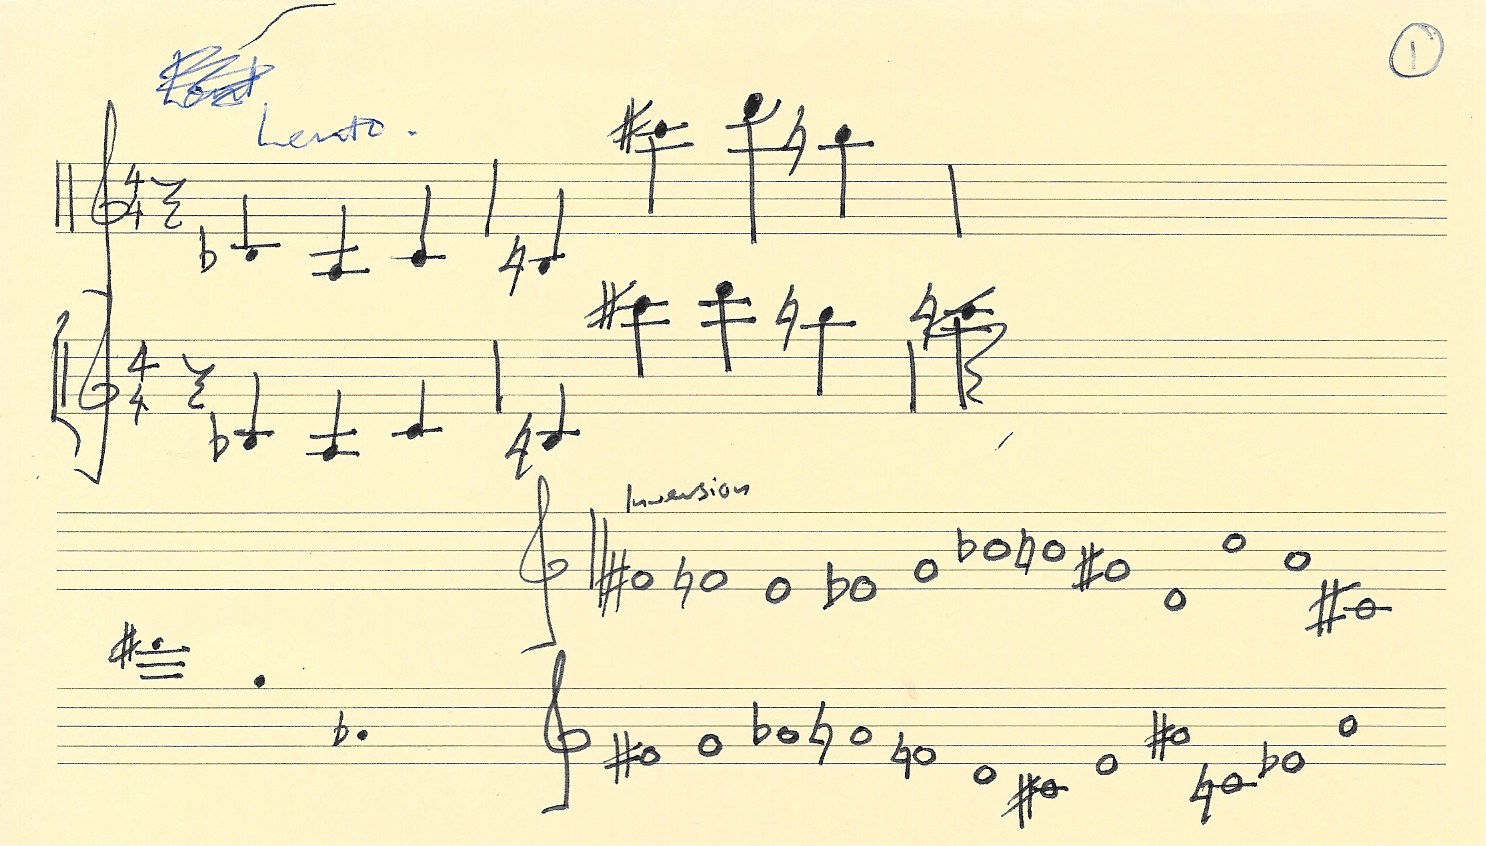 1
Lento.
4
4
4
4
Inversion